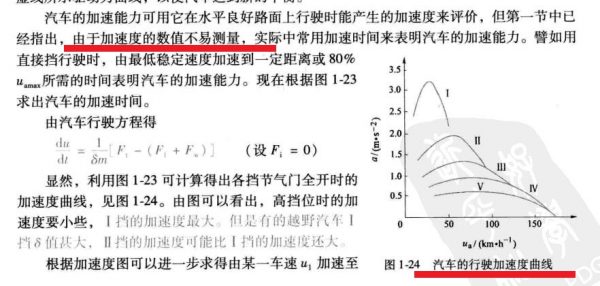 汽车的加速能力可用它在水平良好路面上行驶时能产生的加速度来评价，但第一节中已
经指出，由于加速度的数值不易测量，实际中常用加速时间来表明汽车的加速能力。譬如用
直接挡行驶时，由最低稳定速度加速到一定距离或 80%
uamax所需的时间表明汽车的加速能力。现在根据图 1-23
求出汽车的加速时间。
由汽车行驶方程得
du/dt = 1/δm [Ft - (Ff + Fw)] (设 Fi = 0)
显然，利用图 1-23 可计算得出各挡节气门全开时的
加速度曲线，见图 1-24。由图可以看出，高挡位时的加
速度要小些，Ⅰ挡的加速度最大。但是有的越野汽车Ⅰ
挡 δ 值甚大，Ⅱ挡的加速度可能比Ⅰ挡的加速度还大。
根据加速度图可以进一步求得由某一车速 u1 加速至
a/(m·s-2)
3.5
3.0
2.5
2.0
1.5
1.0
0.5
0
50
100
150
200
Ⅰ
Ⅱ
Ⅲ
Ⅳ
Ⅴ
ua/(km·h-1)
图 1-24 汽车的行驶加速度曲线